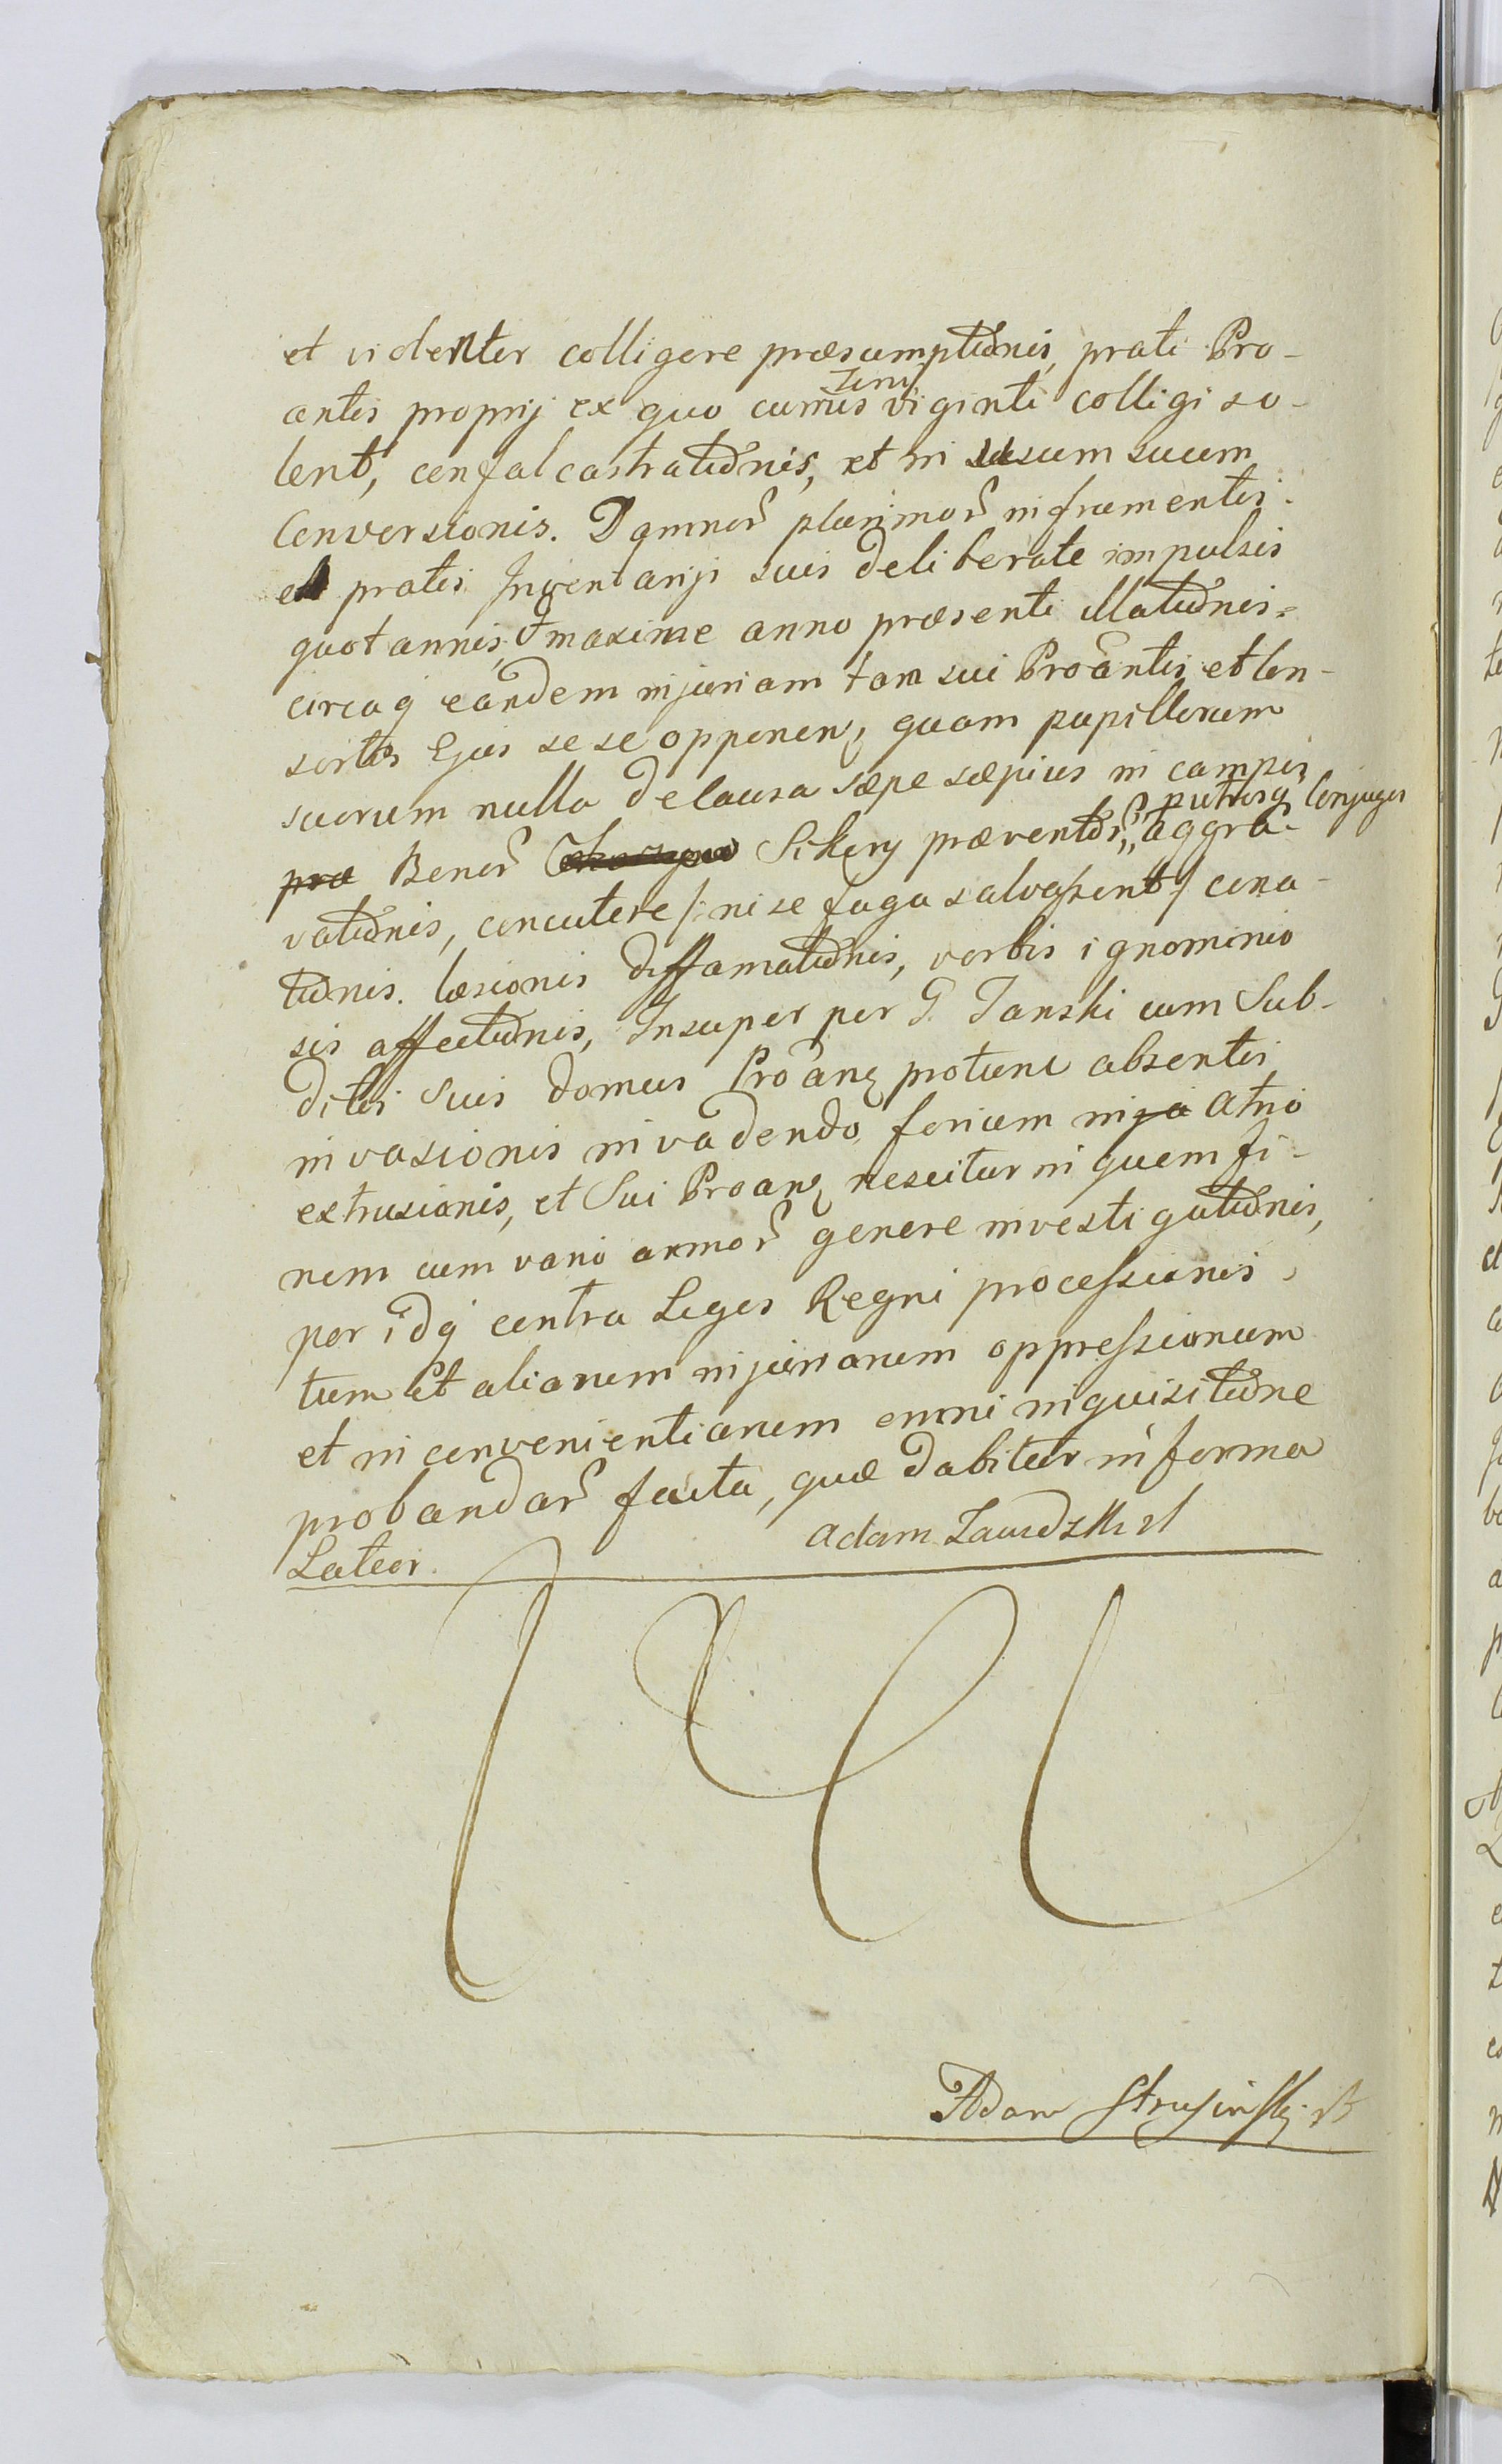 et videnter colligere præsumptiõnis, prati Pro-
antis proprij ex quo currus fœni viginti colligi so-
lent, confalcastratiõnis, et in usum suum
Conversionis. Damnor plurimor in frumentis
et pratis Inventarijs suis deliberate impulsis
quotannis, et maxime anno præsenti illatiõnis.
circaq eandem injuriam tam sui Proãntis et Con-
sortis Ejus sese opponen, quam pupillorum
suorum nulla de causa sæpe sæpius in campis
pra Bonor Sikory præventor, putrisq Conjuges aggra-
vatiõnis, concutere /: ni se fuga salvassent :/ cona-
tiõnis. læsionis diffamatiõnis, verbis ignominio
sis affectiõnis, Insuper per G. Janski cum Sub-
ditis suis domus Proãn protunc absentis
invasionis invadendo, forium in atrio
extrusionis, et Sui Proan nescitur in quem fi-
nem cum vario armor genere investigatiõnis,
per idq contra Leges Regni processionis,
tum et aliarum injuriarum oppressionum
et inconvenientiarum omni inquisitiõne
probandar facta, quæ dabitur in forma
Lateor. Adam Zawdzki
Adam Strusinski